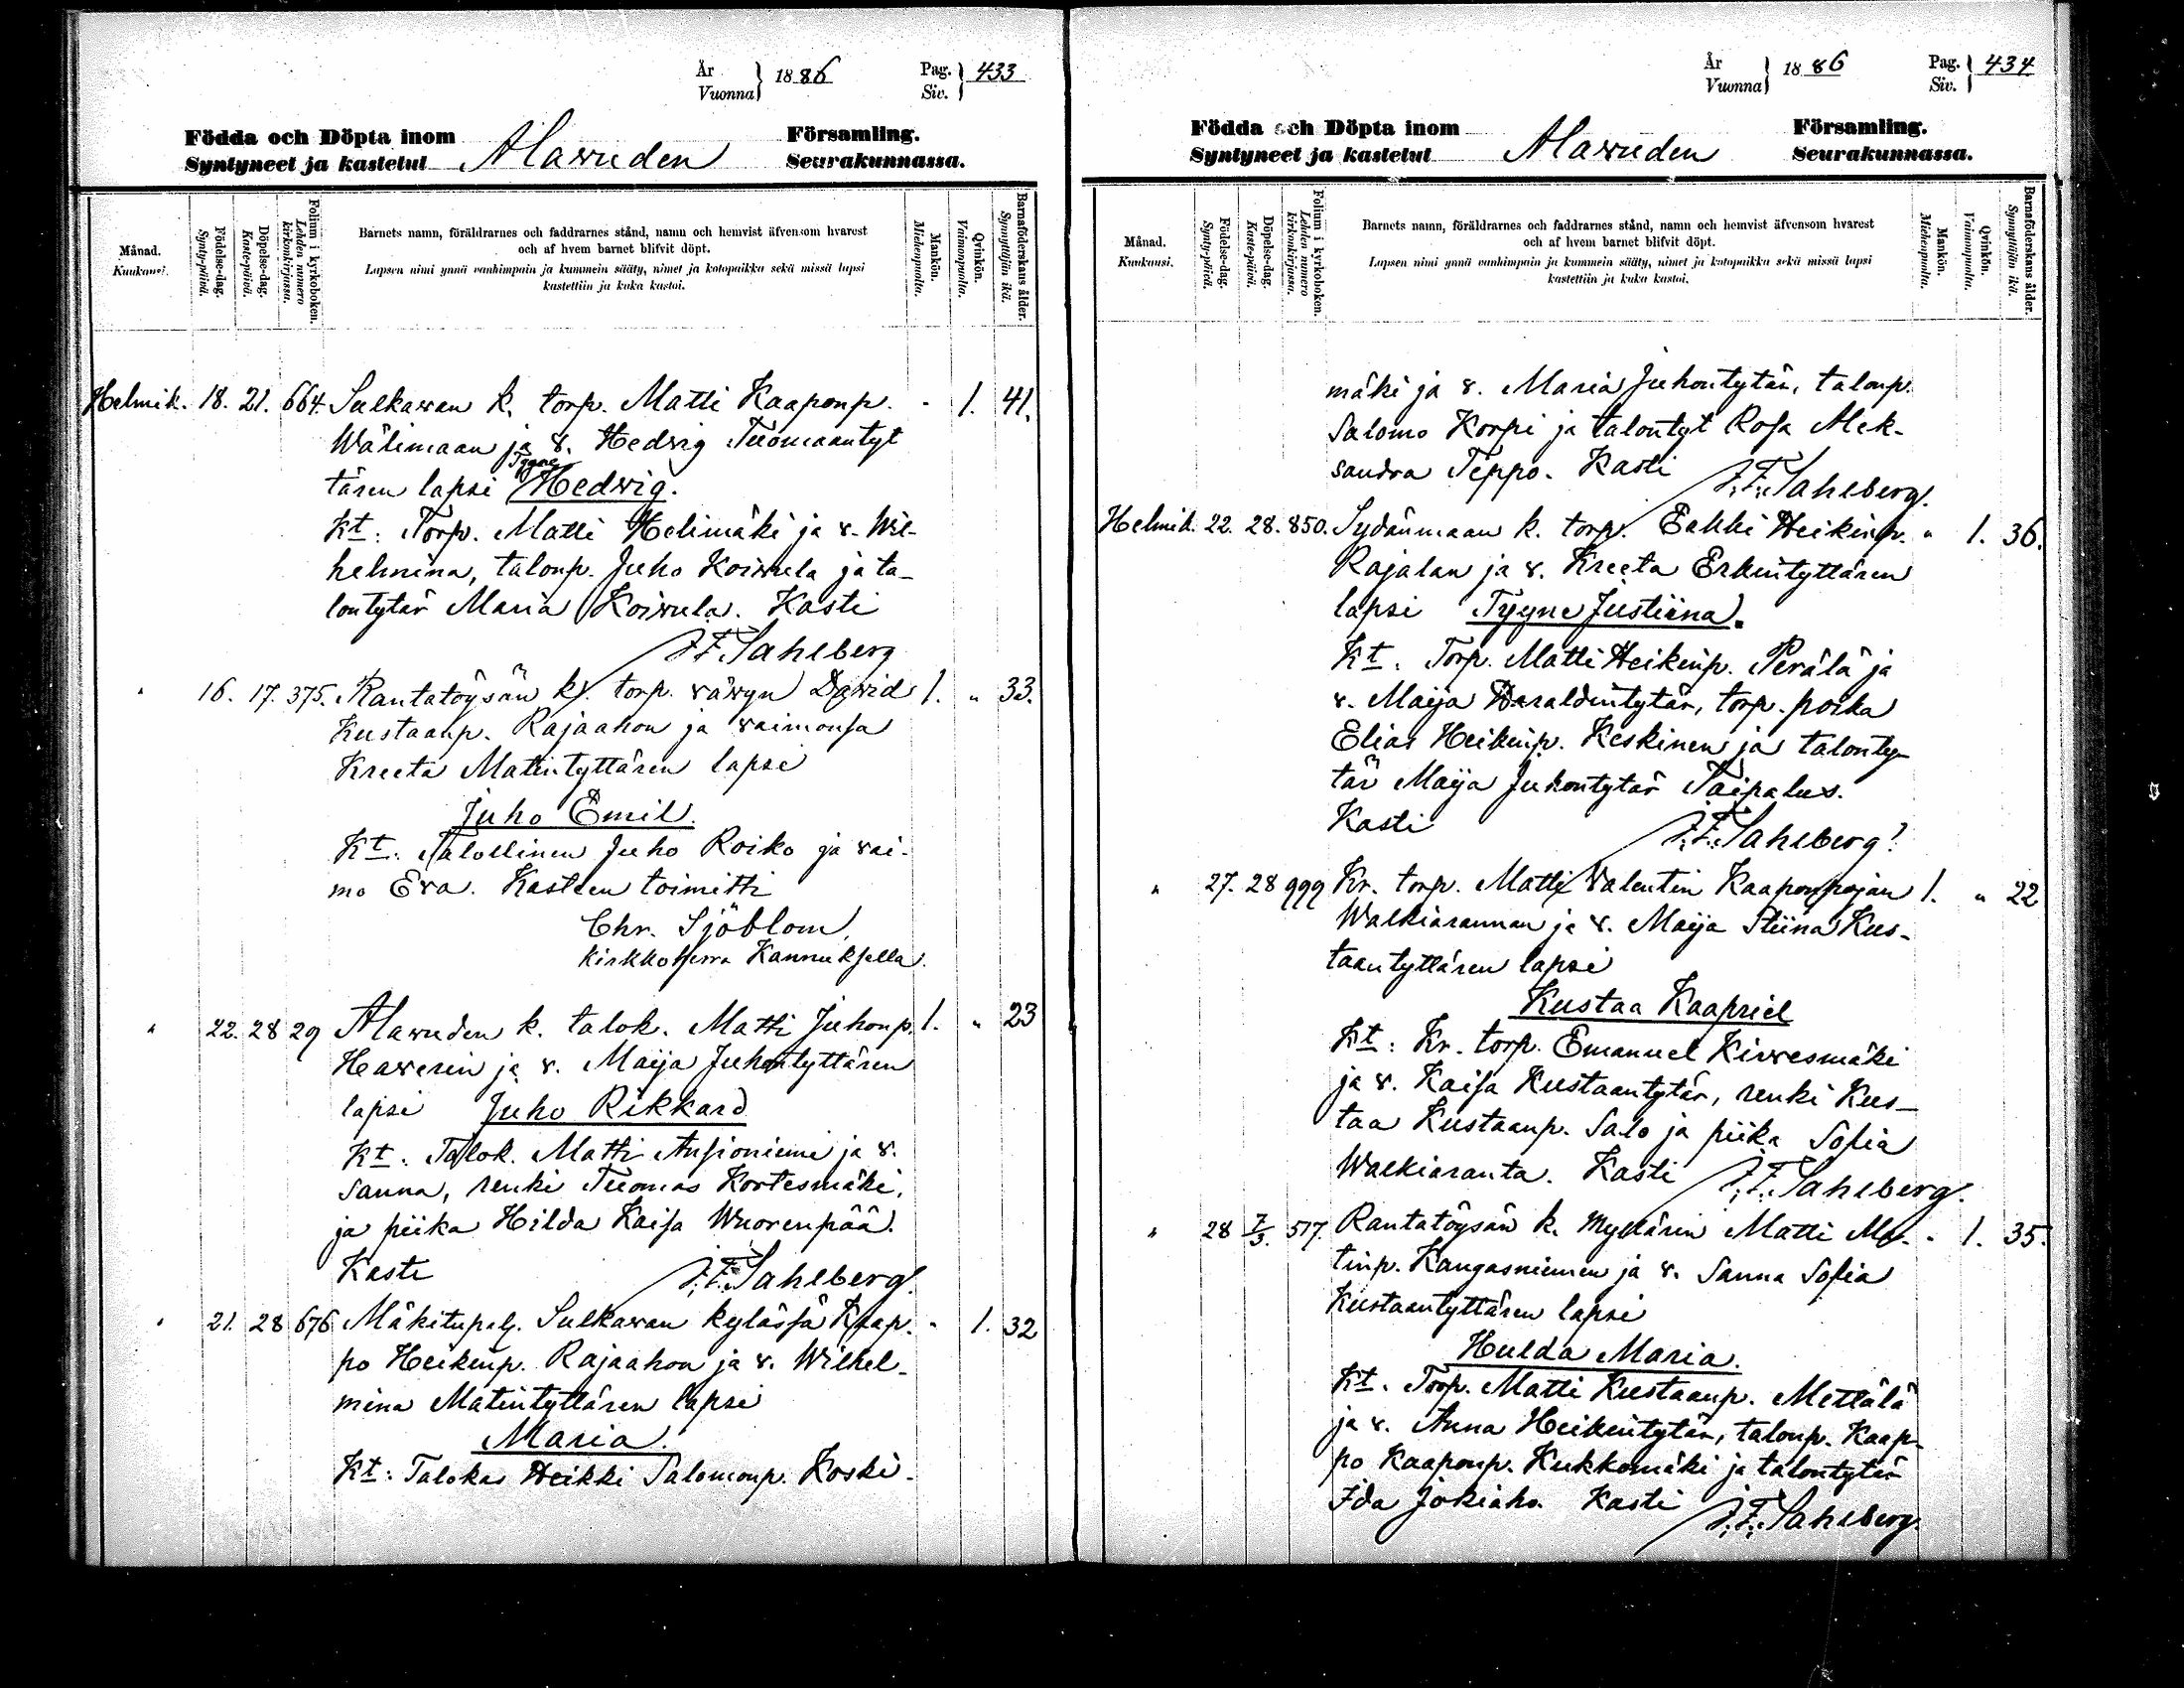 År
Vuonna
1886
Pag.
Siv.
433
Födda och Döpta inom
Syntyneet ja kastetut
Alavuden
Församling.
Seurakunnassa.
Månad.
Kuukausi.
Födelse-dag.
Synty-päivä.
Döpelse-dag.
Kaste-päivä.
Folium i kyrkoboken.
Lehden numero kirkonkirjassa.
Barnets namn, föräldrarnes och faddrarnes stånd, namn och hemvist äfvensom hvarest
och af hvem barnet blifvit döpt.
Lapsen nimi ynnä vanhimpain ja kummein sääty, nimet ja kotopaikka sekä missä lapsi
kastettiin ja kuka kastoi.
Mankön.
Miehenpuolta.
Qvinkön.
Vaimonpuolta.
Barnaföderskans ålder.
Synnyttäjän ikä.
Helmik. 18. 21. 664. Sulkawan k. torp. Matti Kaaponp. - 1. 41.
Wälimaan ja v. Hedvig Tuomaantyt
Tyyne
tären lapsi Hedvig.
Kt: Torp. Matti Helimäki ja v. Wil-
helmina, talonp. Juho Koivula ja ta-
lontytär Maria Koivula. Kasti
J.F. Sahlberg
" 16. 17. 375. Rantatöysän k. torp. vävyn David 1. " 33.
Kustaanp. Rajaahon ja vaimonsa
Kreeta Matintyttären lapsi
Juho Emil.
Kt: Talollinen Juho Roiko ja vai-
mo Eva. Kasteen toimitti
Chr. Sjöblom,
kirkkoherra Kannuksella.
" 22. 28 29 Alavuden k. talok. Matti Juhonp. 1. " 23
Haverin ja v. Maija Juhontyttären
lapsi Juho Rikkard
Kt: Talok. Matti Ansioniemi ja v.
Sanna, renki Tuomas Kortesmäki,
ja piika Hilda Kaisa Wuorenpää.
Kasti J.F. Sahlberg.
" 21. 28 676 Mäkitupalj. Sulkawan kylässä Kaap- " 1. 32
po Heikinp. Rajaahon ja v. Wilhel-
mina Matintyttären lapsi
Maria.
Kt: Talokas Heikki Salomonp. Koski-
År
Vuonna
1886
Pag.
Siv.
434
Födda och Döpta inom
Syntyneet ja kastetut
Alavuden
Församling.
Seurakunnassa.
Månad.
Kuukausi.
Födelse-dag.
Synty-päivä.
Döpelse-dag.
Kaste-päivä.
Folium i kyrkoboken.
Lehden numero kirkonkirjassa.
Barnets namn, föräldrarnes och faddrarnes stånd, namn och hemvist äfvensom hvarest
och af hvem barnet blifvit döpt.
Lapsen nimi ynnä vanhimpain ja kummein sääty, nimet ja kotopaikka sekä missä lapsi
kastettiin ja kuka kastoi.
Mankön.
Miehenpuolta.
Qvinkön.
Vaimonpuolta.
Barnaföderskans ålder.
Synnyttäjän ikä.
mäki ja v. Maria Juhontytär, talonp.
Salomo Korpi ja talontyt Rosa Alek-
sandra Teppo. Kasti J.F. Sahlberg.
Helmik. 22. 28. 850. Sydänmaan k. torp. Erkki Heikinp. " 1. 36.
Rajalan ja v. Kreeta Erkintyttären
lapsi Tyyne Justiina.
Kt. Torp. Matti Heikinp. Perälä ja
v. Maija Haraldintytär, torp. poika
Elias Heikinp. Keskinen ja talonty-
tär Maija Juhontytär Taipalus.
Kasti J.F. Sahlberg.
" 27. 28 999 Kr. torp. Matti Valentin Kaaponpojan 1. " 22
Walkiarannan ja v. Maija Stiina Kus-
taantyttären lapsi
Kustaa Kaapriel
Kt: Kr. torp. Emanuel Kivvesmäki
ja v. Kaisa Kustaantytär, renki Kus-
taa Kustaanp. Salo ja piika Sofia
Walkiaranta. Kasti J.F. Sahlberg.
" 28 7/3. 517. Rantatöysän k. Myllärin Matti Ma- " 1. 35.
tinp. Kangasniemen ja v. Sanna Sofia
Kustaantyttären lapsi
Hulda Maria.
Kt. Torp. Matti Kustaanp. Mettälä
ja v. Anna Heikintytär, talonp. Kaap-
po Kaaponp. Kukkomäki ja talontytär
Ida Jokiaho. Kasti J.F. Sahlberg.